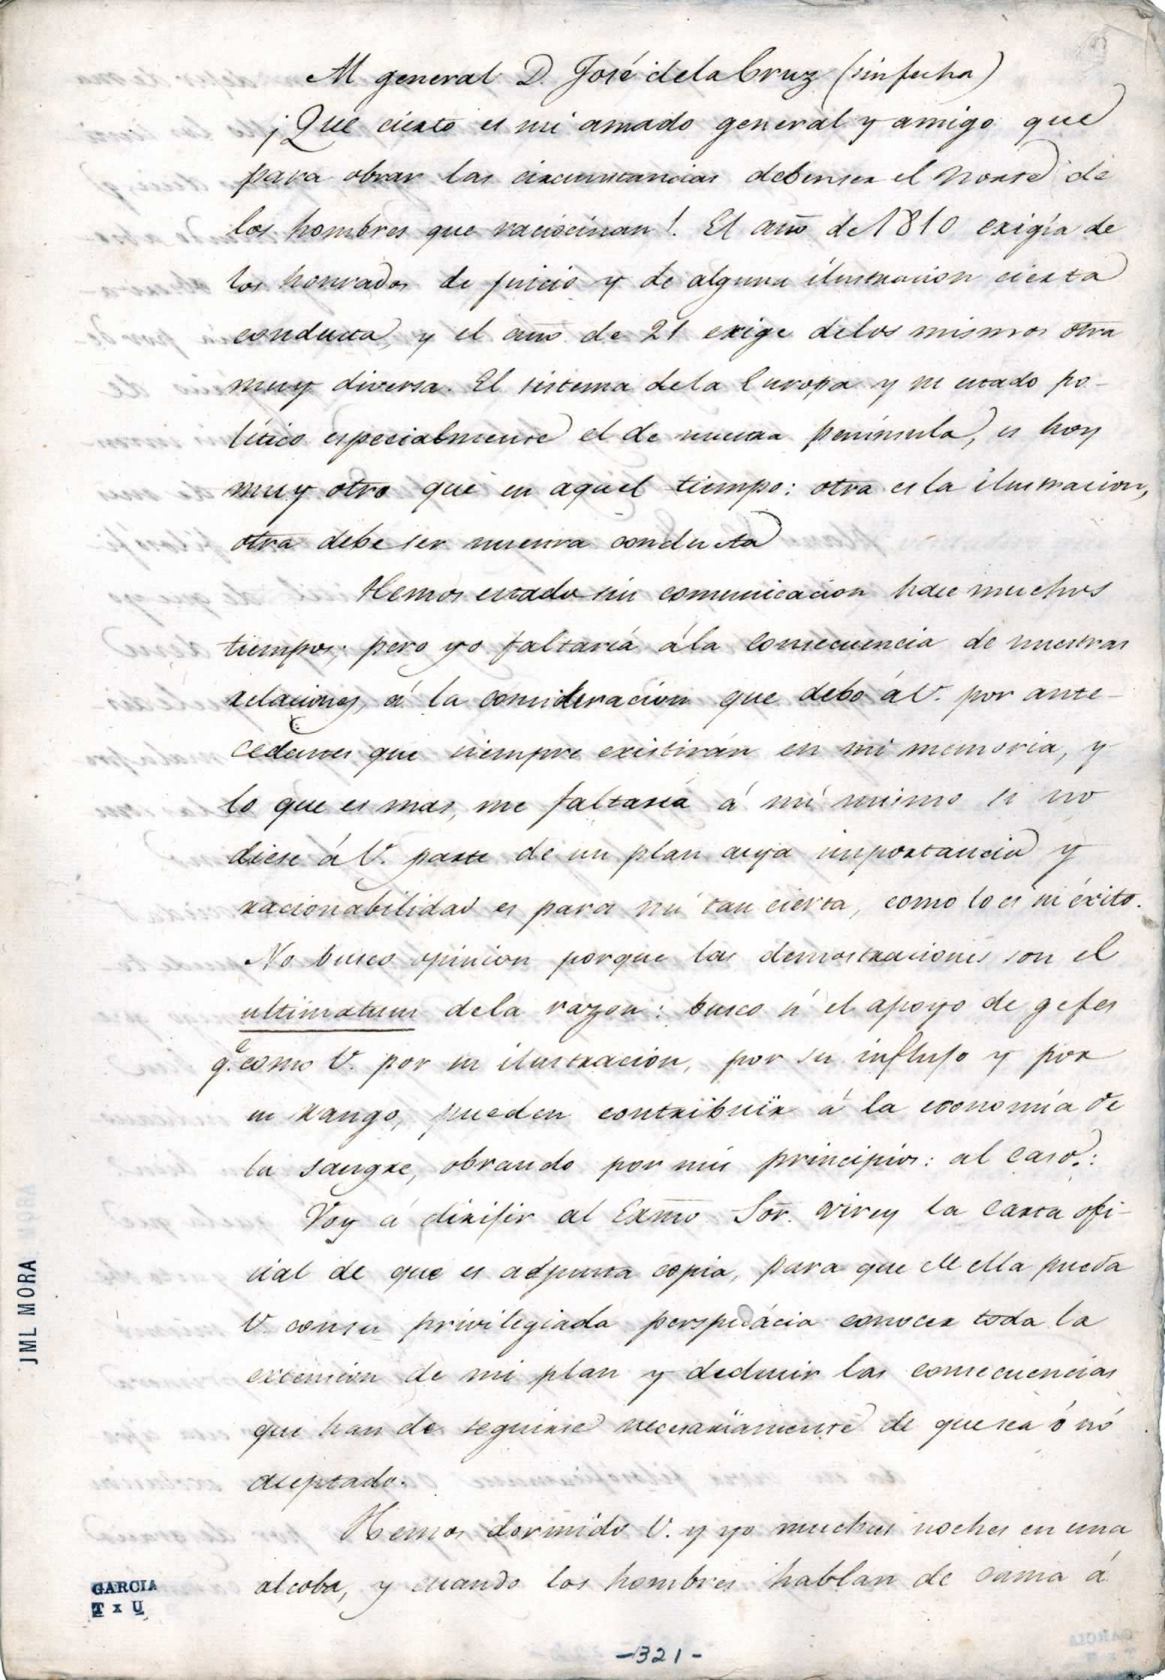 Al general D. José dela Cruz (sin fecha)
¡Que cierto es mi amado general y amigo que
para obrar las circunstancias deben ser el norte de
los hombres que raciocinan!. El año de 1810 exigía de
los honrados de juicio y de alguna ilustracion cierta
conducta, y el año de 21 exige delos mismos otra
muy diversa. El sistema dela Europa y su estado po-
lítico especialmente el de nuestra península, es hoy
muy otro que en aquel tiempo: otra es la ilustracion,
otra debe ser nuestra conducta
Hemos estado sin comunicacion hace muchos
tiempos; pero yo faltaría ála consecuencia de nuestras
relaciones, á la consideracion que debo á V. por ante-
cedentes que siempre existirán en mi memoria, y
lo que es mas, me faltaría á mí mismo si no
diese á V. parte de un plan cuya importancia y
racionabilidad es para mí tan cierta, como lo es su éxito.
No busco opinion porque las demostraciones son el
ultimatum dela razon: busco sí el apoyo de gefes
q.e como V. por su ilustracion, por su influjo y por
su rango, pueden contribuir á la economía de
la sangre, obrando por mis principios: al caso.:
Voy á dirijir al Exmo Sor. virey la carta ofi-
cial de que es adjunta copia, para que de ella pueda
V. consu privilegiada perspicácia conocer toda la
extension de mi plan y deducir las consecuencias
que han de seguirse necesariamente de que sea ó nó
aceptado.
Hemos dormido V. y yo muchas noches en una
alcoba, y cuando los hombres hablan de cama á
JML MORA
GARCIA
T x U
-321-